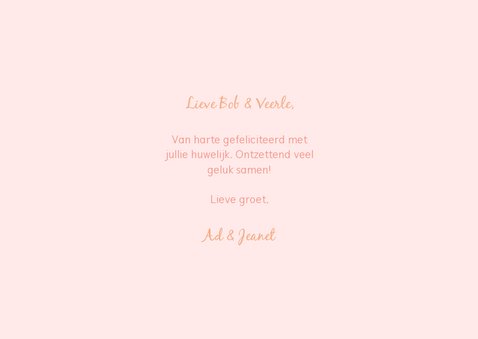 Lieve Bob & Veerle,
Van harte gefeliciteerd met
jullie huwelijk. Ontzettend veel
geluk samen!
Lieve groet,
Ad & Jeanet